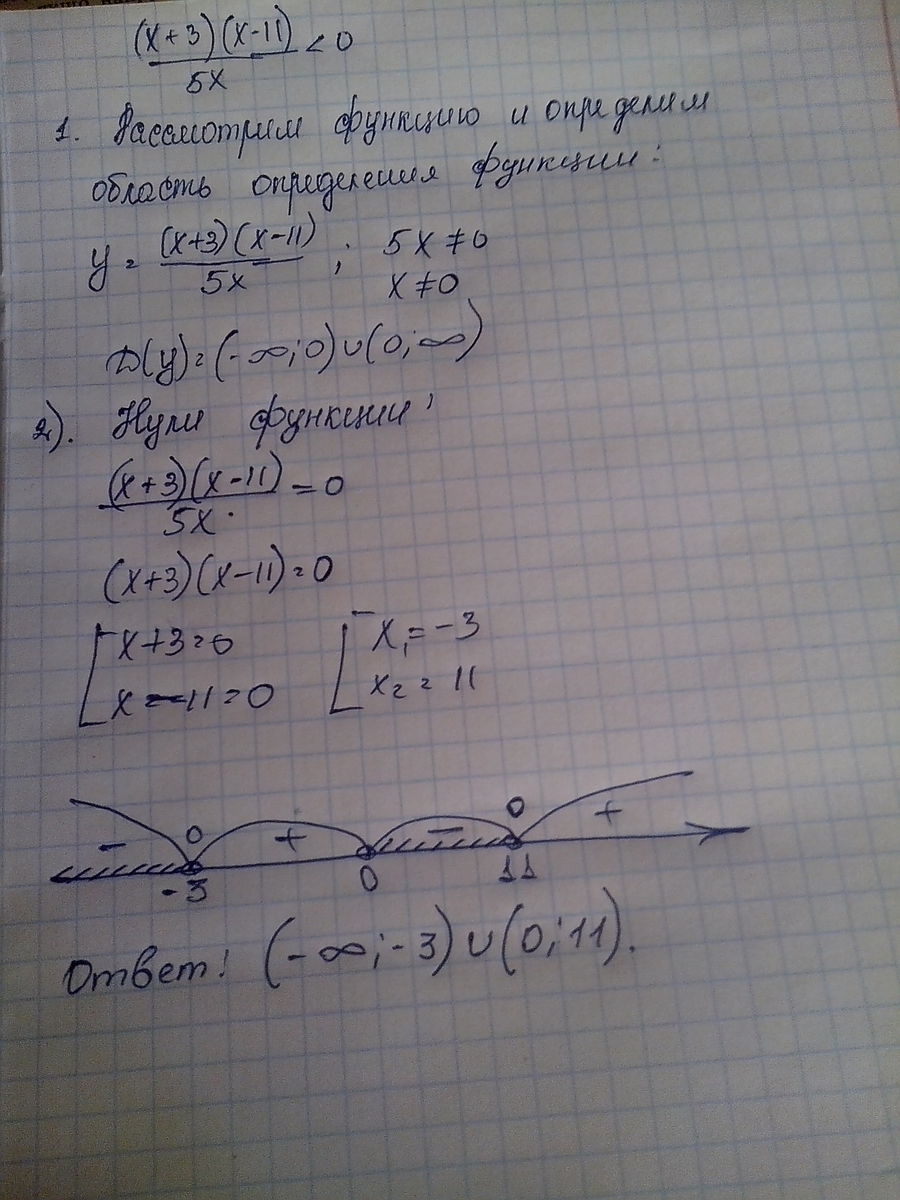 (x+3)(x-11)/5x < 0
1. Рассмотрим функцию и определим
область определения функции:
y = (x+3)(x-11)/5x ; 5x ≠ 0
x ≠ 0
D(y) = (-∞;0)∪(0;∞)
2). Нули функции:
(x+3)(x-11)/5x = 0
(x+3)(x-11) = 0
[x+3=0 [x₁=-3
x-11=0 x₂=11
- 0 + - 0 +
-3 0 11
Ответ: (-∞;-3)∪(0;11).